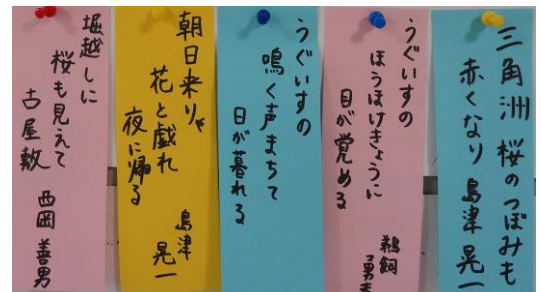 三角洲 桜のつぼみも
赤くなり 島津 晃一
うぐいすの
ほうほけきょうに
目が覚める
鵜飼
うぐいすの
鳴く声まちて
日が暮れる
朝日来りゃ
花と戯れ
夜に帰る
島津 晃一
堀越しに
桜も見えて
古屋敷
西岡 善男